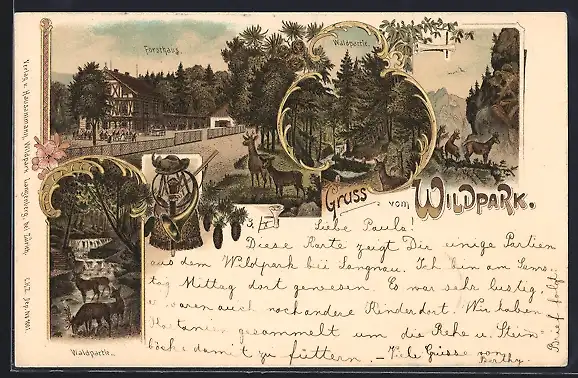 Forsthaus.
Waldpartie.
Gruss vom WILDPARK.
Waldpartie.
Verlag v. Hausammann, Wildpark Langenberg, bei Zürich.
Liebe Paula!
Diese Karte zeigt Dir einige Partien
aus dem Wildpark bei Langnau. Ich bin am Sams-
tag Mittag dort gewesen. Es war sehr lustig,
u waren auch noch andere Kinder dort. Wir haben
Kastanien gesammelt um die Rehe u. Stein-
böcke damit zu füttern. — Viele Grüsse von
Berthy.
Brief folgt.